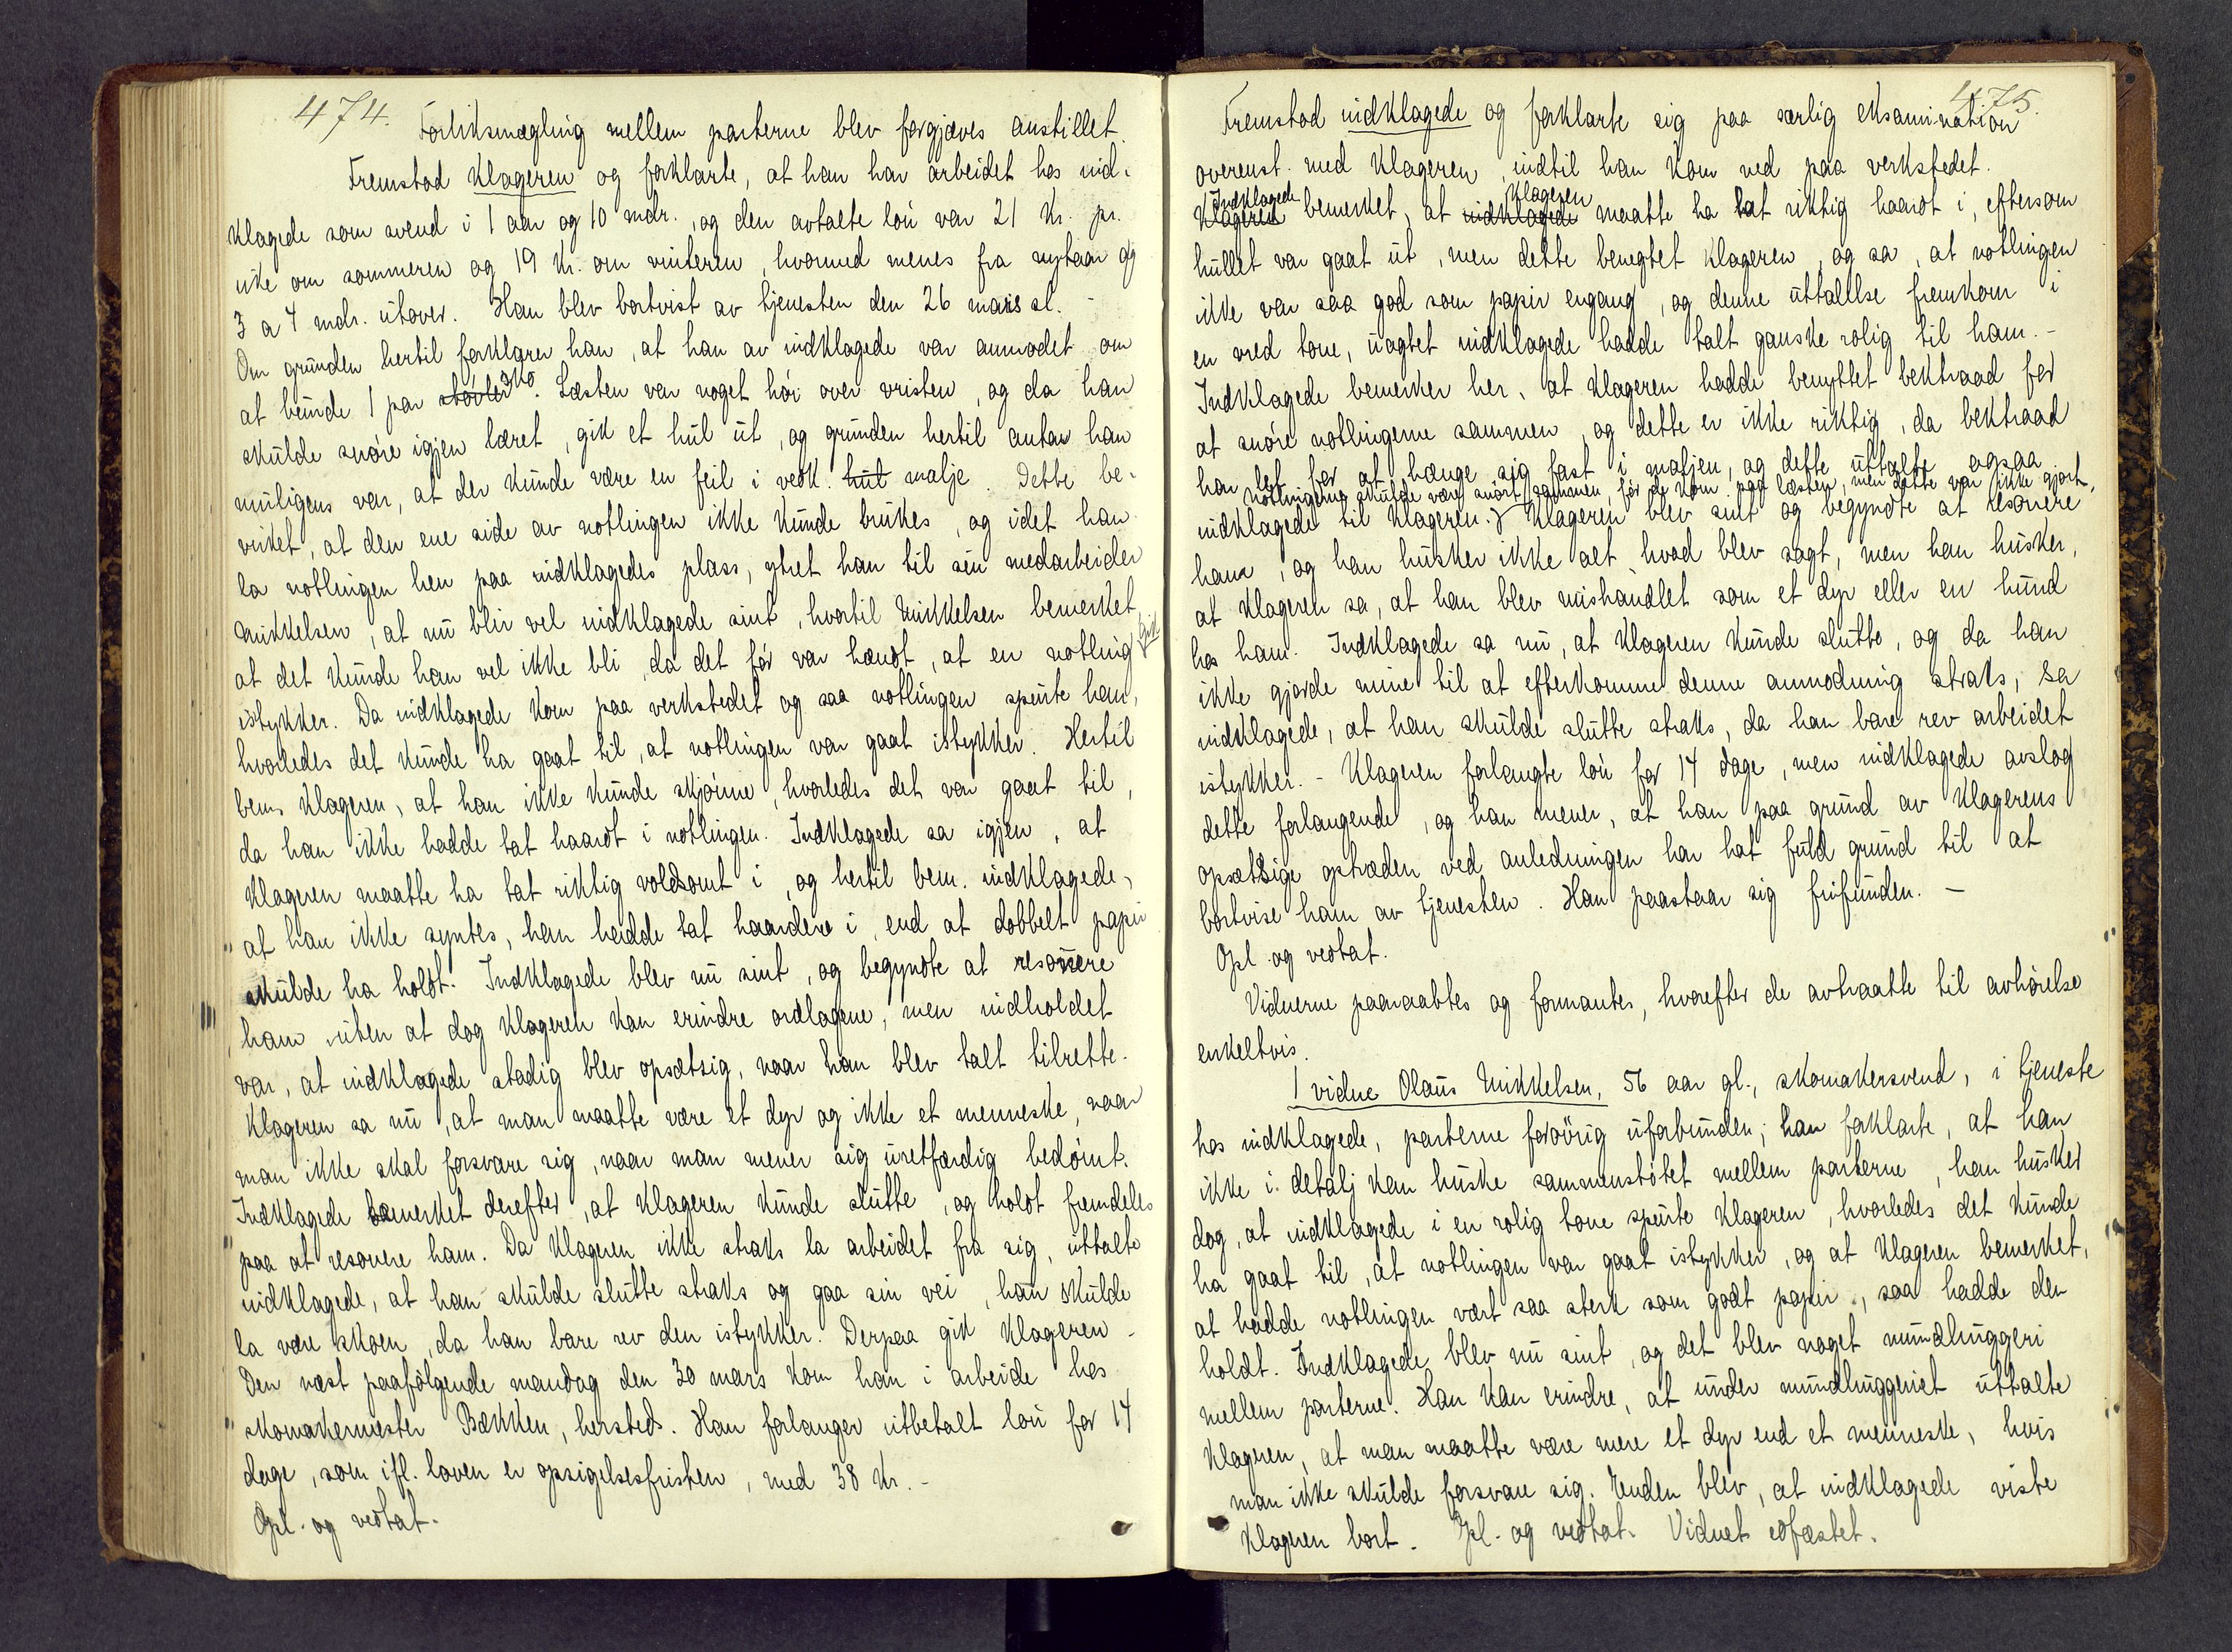 474.
Forliksmægling mellem parterne blev forgjæves anstillet.
Fremstod klageren og forklarte, at han har arbeidet hos ind-
klagede som svend i 1 aar og 10 mdr., og den avtalte løn var 21 kr. pr.
uke om sommeren og 19 kr. om vinteren, hvormed menes fra nytaar og
3 a 4 mdr. utover. Han blev bortvist av tjenesten den 26 mars sl. -
Om grunden hertil forklarer han, at han av indklagede var anmodet om
at beinde 1 par støvler sko. Læsten var noget høi over vristen, og da han
skulde snøre igjen læret, gik et hul ut, og grunden hertil antar han
muligens var, at der kunde være en feil i vedk. hul malje. Dette be-
virket, at den ene side av notlingen ikke kunde brukes, og idet han
la notlingen hen paa indklagedes plass, ytret han til sin medarbeider
Mikkelsen, at nu blir vel indklagede sint, hvortil Mikkelsen bemerket,
at det kunde han vel ikke bli, da det før var hændt, at en notling gik
istykker. Da indklagede kom paa verkstedet og saa notlingen spurte han,
hvorledes det kunde ha gaat til, at notlingen var gaat istykker. Hertil
bem. klageren, at han ikke kunde skjønne, hvorledes det var gaat til,
da han ikke hadde tat haardt i notlingen. Indklagede sa igjen, at
klageren maatte ha tat riktig voldsomt i, og hertil bem. indklagede,
at han ikke syntes, han hadde tat haardere i, end at dobbelt papir
skulde ha holdt. Indklagede blev nu sint, og begyndte at resonere
ham uten at dog klageren kan erindre ordlagene, men indholdet
var, at indklagede stadig blev opsætsig, naar han blev talt tilrette.
Klageren sa nu, at man maatte være et dyr og ikke et menneske, naar
man ikke skal forsvare sig, naar man mener sig uretfærdig bedømt.
Indklagede bemerket derefter, at klageren kunde slutte, og holdt fremdeles
paa at resonere ham. Da klageren ikke straks la arbeidet fra sig, uttalte
indklagede, at han skulde slutte straks og gaa sin vei, han skulde
la være skoen, da han bare rev den istykker. Derpaa gik klageren -
Den næst paafølgende mandag den 30 mars kom han i arbeide hos
skomakermester Bækken, hersteds. Han forlanger utbetalt løn for 14
dage, som ifl. loven er opsigelsesfristen, med 38 kr. -
Opl. og vedtat.
475.
Fremstod indklagede og forklarte sig paa særlig eksamination
overenst. med klageren, indtil han kom ned paa verkstedet.
Indklagede Klageren
Klageren bemerket, at indklagede maatte ha tat riktig haardt i, eftersom
hullet var gaat ut, men dette benegtet klageren, og sa, at notlingen
ikke var saa god som papir engang, og denne uttallse fremkom i
en vred tone, uagtet indklagede hadde talt ganske rolig til ham. -
Indklagede bemerker her, at klageren hadde benyttet bektraad for
at snøre notlingerne sammen, og dette er ikke riktig, da bektraad
har let for at hænge sig fast i maljen, og dette uttalte ogsaa
notlingerne skulde være snørt sammen, før de kom paa læsten, men dette var ikke gjort,
indklagede til klageren. Klageren blev sint og begyndte at resonere
ham, og han husker ikke alt hvad blev sagt, men han husker,
at klageren sa, at han blev mishandlet som et dyr eller en hund
hos ham. Indklagede sa nu, at klageren kunde slutte, og da han
ikke gjorde mine til at efterkomme denne anmodning straks, sa
indklagede, at han skulde slutte straks, da han bare rev arbeidet
istykker. - Klageren forlangte løn for 14 dage, men indklagede avslog
dette forlangende, og han mener, at han paa grund av klagerens
opsætsige optræden ved anledningen har hat fuld grund til at
bortvise ham av tjenesten. Han paastaar sig frifunden. -
Opl. og vedtat.
Vidnerne paaraabtes og formantes, hvorefter de avtraatte til avhørelse
enkeltvis.
1 vidne Olaus Mikkelsen, 56 aar gl., skomakersvend, i tjeneste
hos indklagede, parterne forøvrig uforbunden; han forklarte, at han
ikke i detalj kan huske sammenstøtet mellem parterne, han husker
dog, at indklagede i en rolig tone spurte klageren, hvorledes det kunde
ha gaat til, at notlingen var gaat istykker, og at klageren bemerket,
at hadde notlingen vært saa sterk som godt papir, saa hadde den
holdt. Indklagede blev nu sint, og det blev noget mundhuggeri
mellem parterne. Han kan erindre, at under mundhuggeriet uttalte
klageren, at man maatte være mere et dyr end et menneske, hvis
man ikke skulde forsvare sig. Enden blev, at indklagede viste
klageren bort. Opl. og vedtat. Vidnet edfæstet.